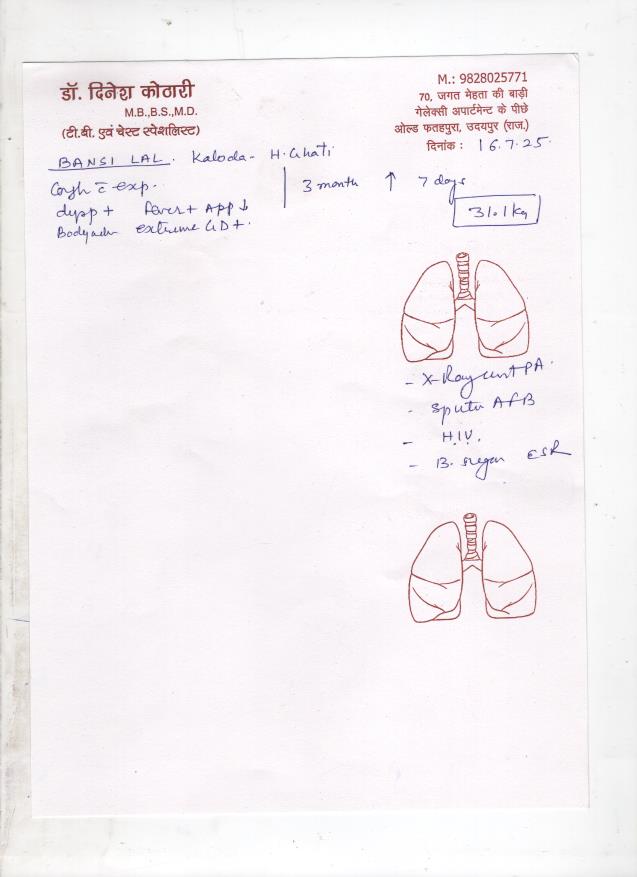 डॉ. दिनेश कोठारी
M.B.,B.S.,M.D.
(टी.बी. एवं चेस्ट स्पेशलिस्ट)
M.: 9828025771
70, जगत मेहता की बाड़ी
गेलेक्सी अपार्टमेन्ट के पीछे
ओल्ड फतहपुरा, उदयपुर (राज.)
दिनांक : 16.7.25.
BANSI LAL. Kaloda - H. Ghati
Cough c̄ exp. 3 month ↑ 7 days
dysp + fever + App ↓
31.1 kg
Bodyache extreme GD+.
- X-Ray chest PA.
- Sputum AFB
- H.I.V.
- B. sugar ESR